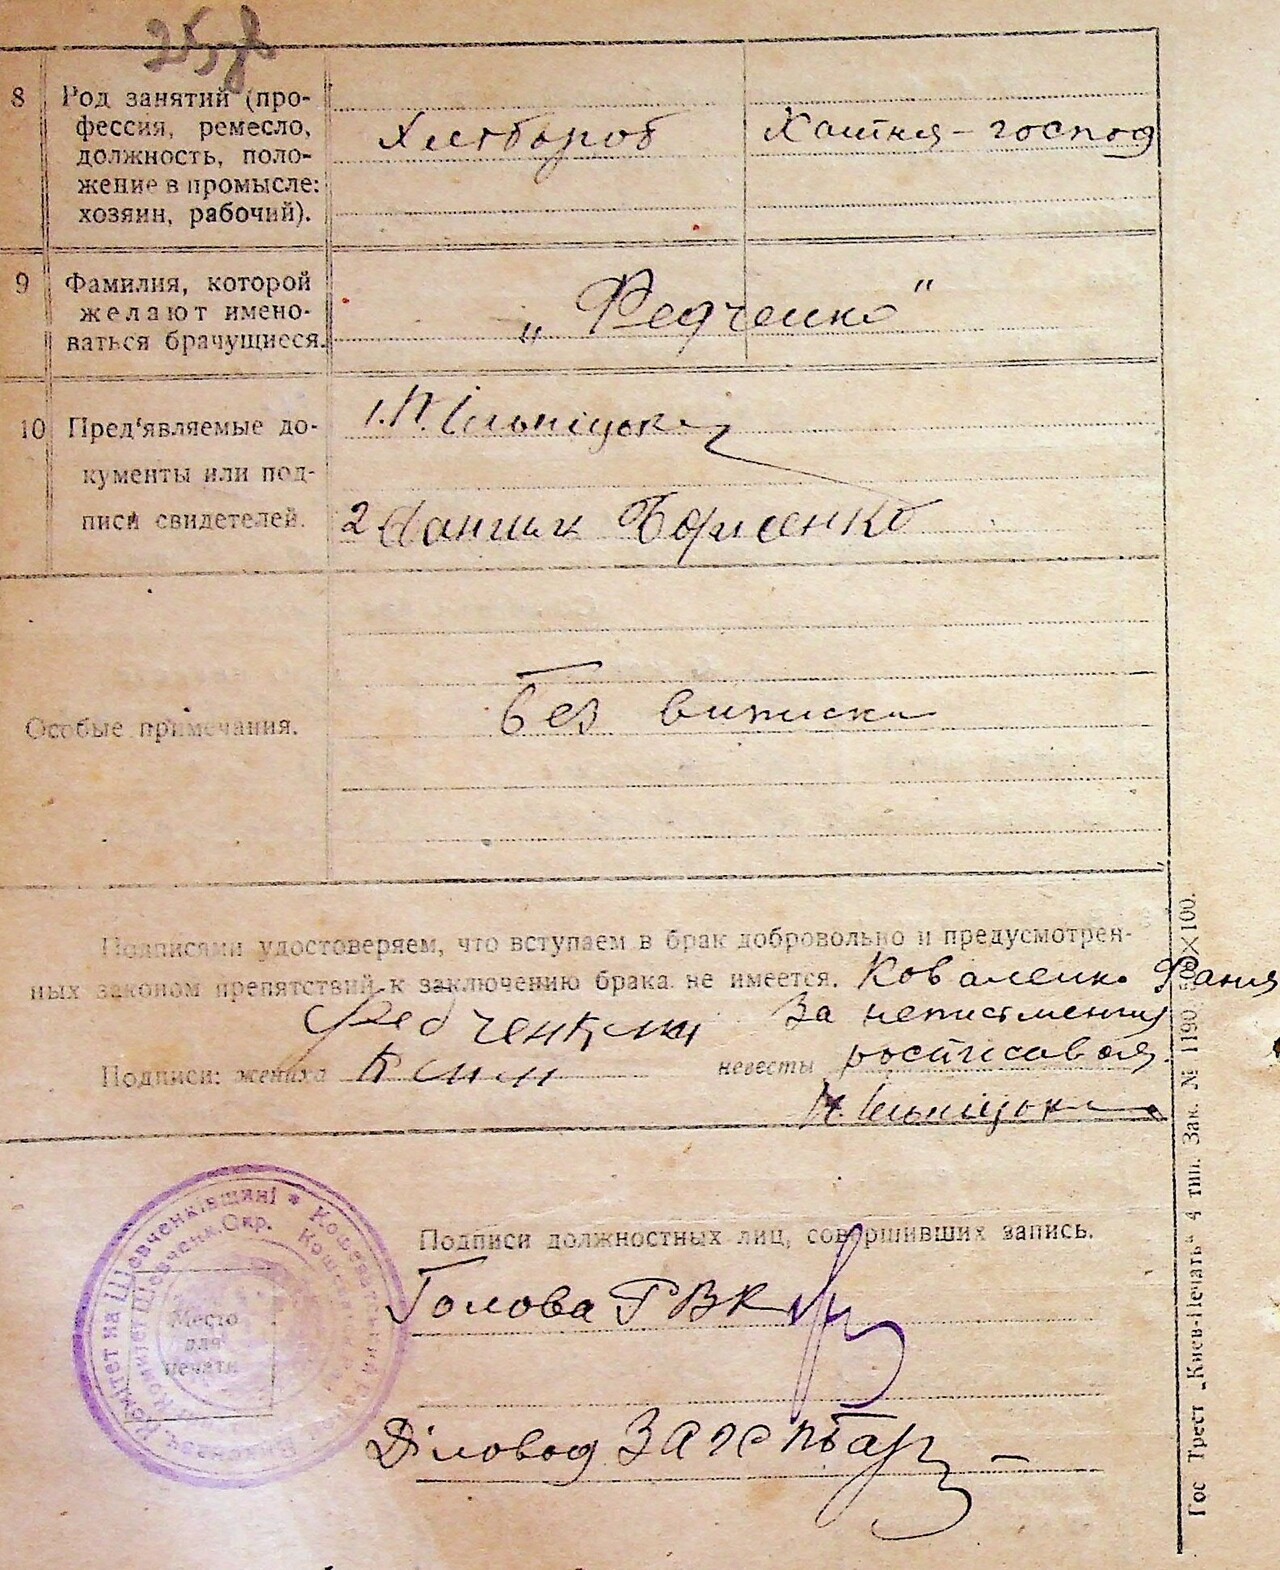 8 Род занятий (про-
фессия, ремесло,
должность, поло-
жение в промысле:
хозяин, рабочий).
Хлебороб
Хатня - господ
9 Фамилия, которой
желают имено-
ваться брачущиеся.
„ Федченко "
10 Пред'являемые до-
кументы или под-
писи свидетелей.
1. Н. Ільніцьк
2 Борисенко
Особые примечания.
Без виписки
Подписями удостоверяем, что вступаем в брак добровольно и предусмотрен-
ных законом препятствий к заключению брака не имеется. Коваленко Фання
За неписменну
Подписи: жениха
невесты росписовася
Н. Ільніцьк
Подписи должностных лиц, совершивших запись.
Голова РВК
Діловод ЗАГС
Место
для
печати
Комітет на Шевченківщині * Кошеватський
Шевченк. Окр.
Гос Трест „Киев-Печать" 4 тип. Зак. № 1190